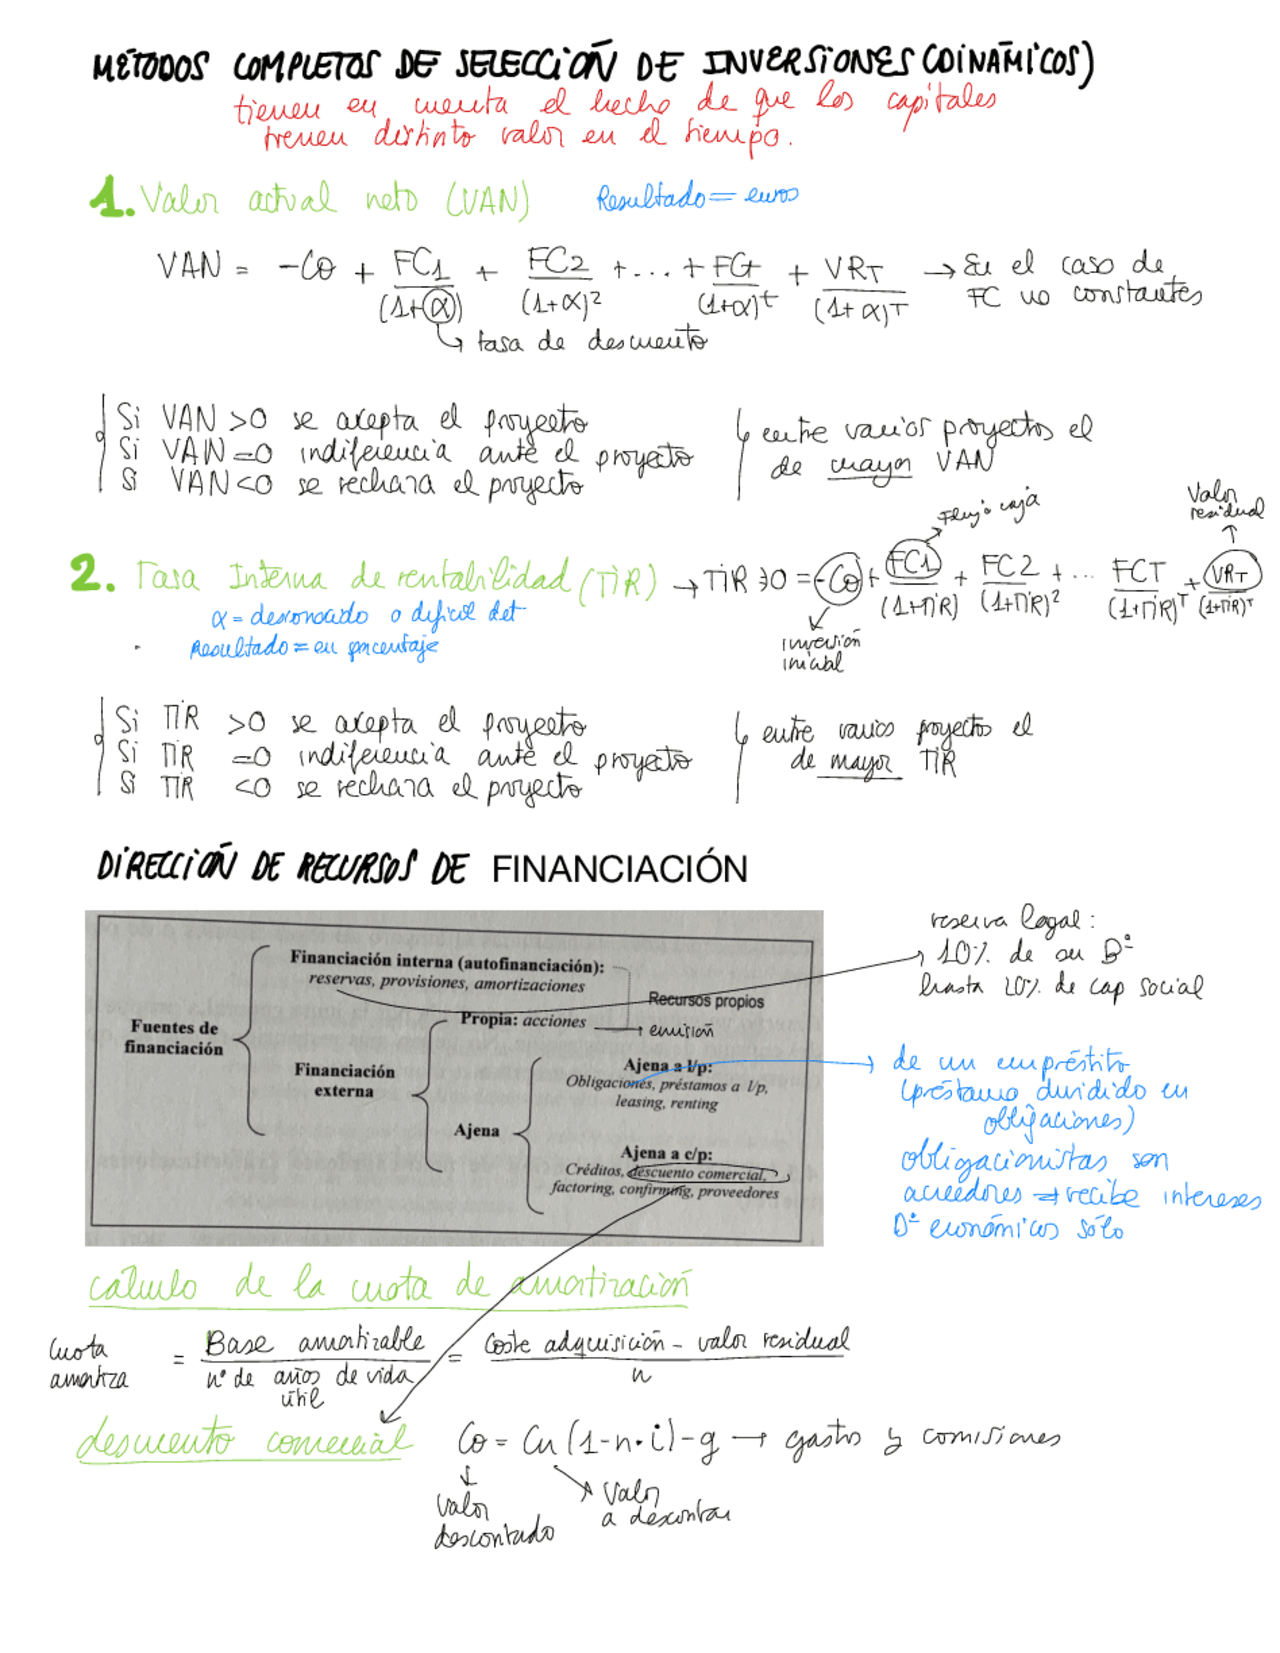 MÉTODOS COMPLETOS DE SELECCIÓN DE INVERSIONES (DINÁMICOS)
tienen en cuenta el hecho de que los capitales
tienen distinto valor en el tiempo.
1. Valor actual neto (VAN) Resultado = euros
VAN = -Co + FC1/(1+α) + FC2/(1+α)² + ... + FCt/(1+α)^t + VRT/(1+α)^T → En el caso de
FC no constantes
↳ tasa de descuento
Si VAN >0 se acepta el proyecto
Si VAN =0 indiferencia ante el proyecto
Si VAN <0 se rechaza el proyecto
↳ entre varios proyectos el
de mayor VAN
Flujo caja
Valor
residual
2. Tasa Interna de rentabilidad (TIR) → TIR ∋ 0 = -Co + FC1/(1+TIR) + FC2/(1+TIR)² + ... FCT/(1+TIR)^T + VRT/(1+TIR)^T
α = desconocido o dificil det
Resultado = en porcentaje
inversión
inicial
Si TIR >0 se acepta el proyecto
Si TIR =0 indiferencia ante el proyecto
Si TIR <0 se rechaza el proyecto
↳ entre varios proyectos el
de mayor TIR
DIRECCIÓN DE RECURSOS DE FINANCIACIÓN
Fuentes de
financiación
Financiación interna (autofinanciación):
reservas, provisiones, amortizaciones
Recursos propios
Financiación
externa
Propia: acciones → emisión
Ajena
Ajena a l/p:
Obligaciones, préstamos a l/p,
leasing, renting
Ajena a c/p:
Créditos, descuento comercial,
factoring, confirming, proveedores
reserva legal:
→ 10% de su Bº
hasta 20% de cap social
→ de un empréstito
(préstamo dividido en
obligaciones)
obligacionistas son
acreedores ⇒ recibe intereses
Dº económicos sólo
cálculo de la cuota de amortización
Cuota
amortiza = Base amortizable / nº de años de vida útil = Coste adquisición - valor residual / n
descuento comercial Co = Cn (1-n·i) - g → gastos y comisiones
valor
descontado
valor
a descontar